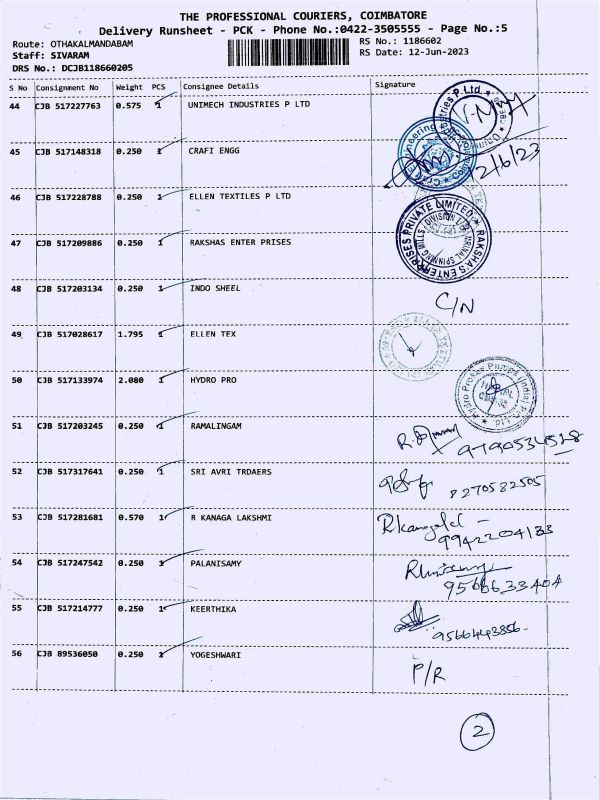 THE PROFESSIONAL COURIERS, COIMBATORE
Delivery Runsheet - PCK - Phone No.:0422-3505555 - Page No.:5
Route: OTHAKALMANDABAM RS No.: 1186602
Staff: SIVARAM RS Date: 12-Jun-2023
DRS No.: DCJB118660205
S No Consignment No Weight PCS Consignee Details Signature
44 CJB 517227763 0.575 1 UNIMECH INDUSTRIES P LTD
45 CJB 517148318 0.250 1 CRAFI ENGG
12/6/23
46 CJB 517228788 0.250 1 ELLEN TEXTILES P LTD
47 CJB 517209886 0.250 1 RAKSHAS ENTER PRISES
RAKSHA'S ENTERPRISES PRIVATE LIMITED
SPINNING MILLS DIVISION
48 CJB 517203134 0.250 1 INDO SHEEL C/N
49 CJB 517028617 1.795 1 ELLEN TEX
50 CJB 517133974 2.080 1 HYDRO PRO
Hydro Prokav Pumps (India) Pvt. Ltd.
51 CJB 517203245 0.250 1 RAMALINGAM
52 CJB 517317641 0.250 1 SRI AVRI TRDAERS 8270582505
53 CJB 517281681 0.570 1 R KANAGA LAKSHMI
9942204133
54 CJB 517247542 0.250 1 PALANISAMY
9566633404
55 CJB 517214777 0.250 1 KEERTHIKA
9566443856
56 CJB 89536050 0.250 1 YOGESHWARI P/R
2